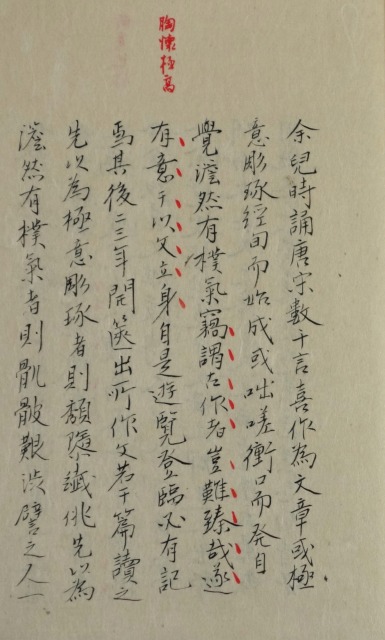 胸懷極高
余兒時誦唐宋數千言喜作為文章或極
意彫琢經旬而始成或咄嗟衝口而発自
覺澹然有樸氣竊謂古作者豈難臻哉遂
有意于以文立身自是遊覽登臨必有記
焉其後二三年開篋出所作文若干篇讀之
先以為極意彫琢者則頽隳纖佻先以為
澹然有樸氣者則骫骳艱澁譬之人一